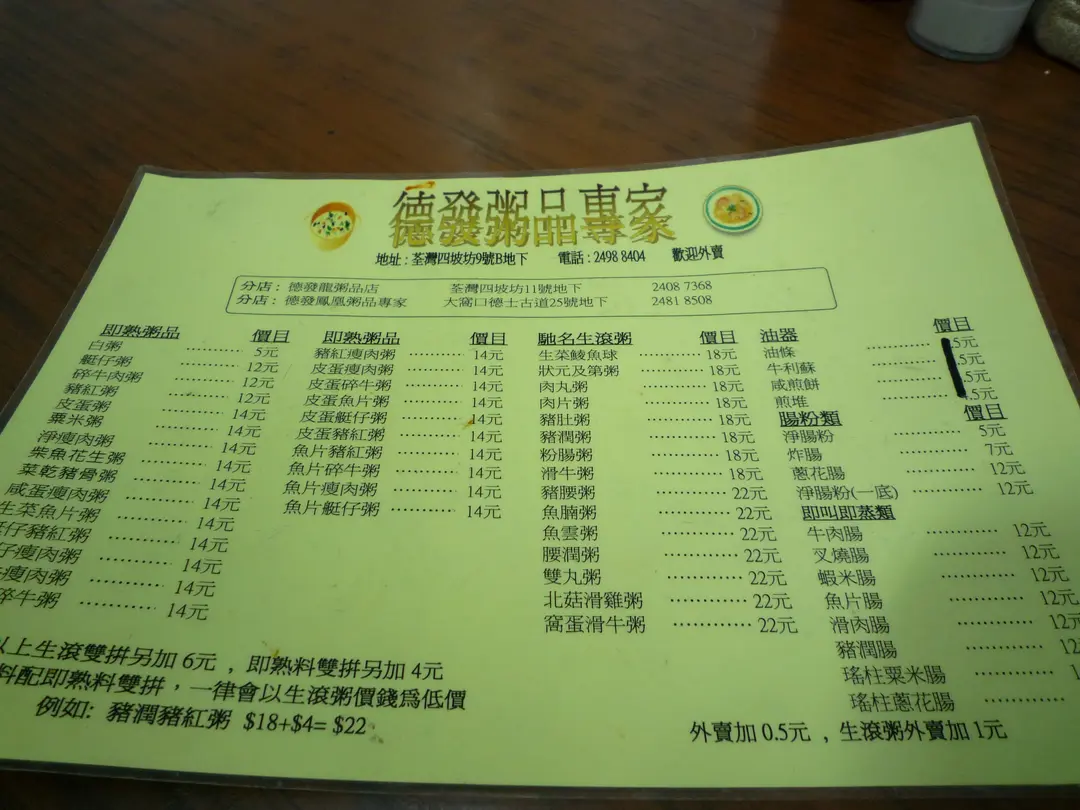 德發粥品專家
地址 : 荃灣四坡坊9號B地下 電話 : 2498 8404 歡迎外賣
分店 : 德發龍粥品店 荃灣四坡坊11號地下 2408 7368
分店 : 德發鳳凰粥品專家 大窩口德士古道25號地下 2481 8508
即熟粥品 價目
白粥 ............ 5元
艇仔粥 ............ 12元
碎牛肉粥 ............ 12元
豬紅粥 ............ 12元
皮蛋粥 ............ 14元
粟米粥 ............ 14元
淨瘦肉粥 ............ 14元
柴魚花生粥 ............ 14元
菜乾豬骨粥 ............ 14元
咸蛋瘦肉粥 ............ 14元
生菜魚片粥 ............ 14元
艇仔豬紅粥 ............ 14元
仔瘦肉粥 ............ 14元
瘦肉粥 ............ 14元
碎牛粥 ............ 14元
即熟粥品 價目
豬紅瘦肉粥 ............ 14元
皮蛋瘦肉粥 ............ 14元
皮蛋碎牛粥 ............ 14元
皮蛋魚片粥 ............ 14元
皮蛋艇仔粥 ............ 14元
皮蛋豬紅粥 ............ 14元
魚片豬紅粥 ............ 14元
魚片碎牛粥 ............ 14元
魚片瘦肉粥 ............ 14元
魚片艇仔粥 ............ 14元
馳名生滾粥 價目
生菜鯪魚球 ............ 18元
狀元及第粥 ............ 18元
肉丸粥 ............ 18元
肉片粥 ............ 18元
豬肚粥 ............ 18元
豬潤粥 ............ 18元
粉腸粥 ............ 18元
滑牛粥 ............ 18元
豬腰粥 ............ 22元
魚腩粥 ............ 22元
魚雲粥 ............ 22元
腰潤粥 ............ 22元
雙丸粥 ............ 22元
北菇滑雞粥 ............ 22元
窩蛋滑牛粥 ............ 22元
油器 價目
油條 ............ .5元
牛利酥 ............ .5元
咸煎餅 ............ .5元
煎堆 ............ .5元
腸粉類 價目
淨腸粉 ............ 5元
炸腸 ............ 7元
蔥花腸 ............ 12元
淨腸粉(一底) ............ 12元
即叫即蒸類
牛肉腸 ............ 12元
叉燒腸 ............ 12元
蝦米腸 ............ 12元
魚片腸 ............ 12元
滑肉腸 ............ 12元
豬潤腸 ............ 12
瑤柱粟米腸 ............ 1
瑤柱蔥花腸 ............
以上生滾雙拼另加 6元 , 即熟料雙拼另加 4元
料配即熟料雙拼 , 一律會以生滾粥價錢為低價
例如: 豬潤豬紅粥 $18+$4= $22
外賣加 0.5元 , 生滾粥外賣加 1元